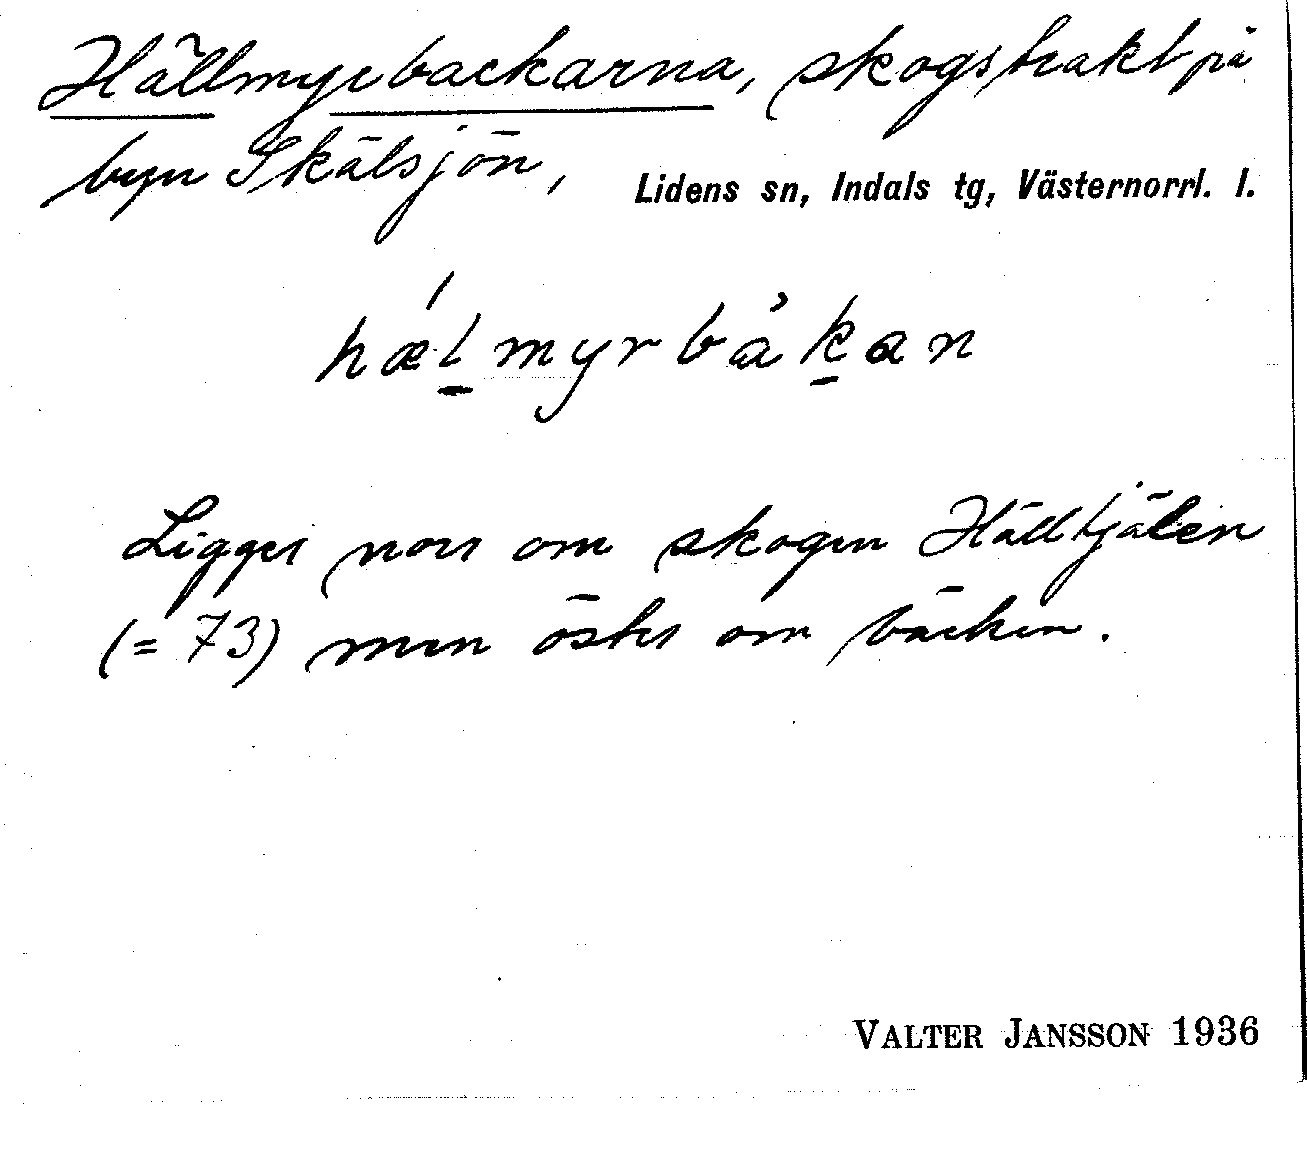 Hällmyrbackarna, skogstrakt på
byn Skälsjön, Lidens sn, Indals tg, Västernorrl. l.
hǽl̠myrbåk̠an
Ligger norr om skogen Hälltjälen
(= 73) men öster om bäcken.
VALTER JANSSON 1936